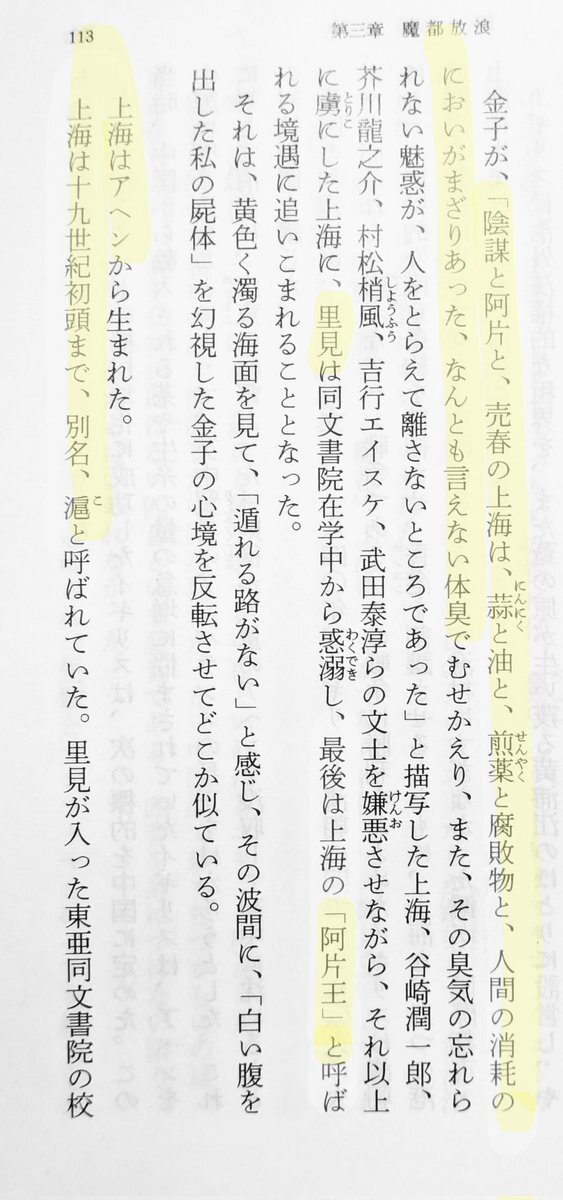 第三章　魔都放浪
113
金子が、「陰謀と阿片と、売春の上海は、蒜と油と、煎薬と腐敗物と、人間の消耗の
においがまざりあった、なんとも言えない体臭でむせかえり、また、その臭気の忘れら
れない魅惑が、人をとらえて離さないところであった」と描写した上海、谷崎潤一郎、
芥川龍之介、村松梢風、吉行エイスケ、武田泰淳らの文士を嫌悪させながら、それ以上
に虜にした上海に、里見は同文書院在学中から惑溺し、最後は上海の「阿片王」と呼ば
れる境遇に追いこまれることとなった。
それは、黄色く濁る海面を見て、「遁れる路がない」と感じ、その波間に、「白い腹を
出した私の屍体」を幻視した金子の心境を反転させてどこか似ている。
上海はアヘンから生まれた。
上海は十九世紀初頭まで、別名、滬と呼ばれていた。里見が入った東亜同文書院の校